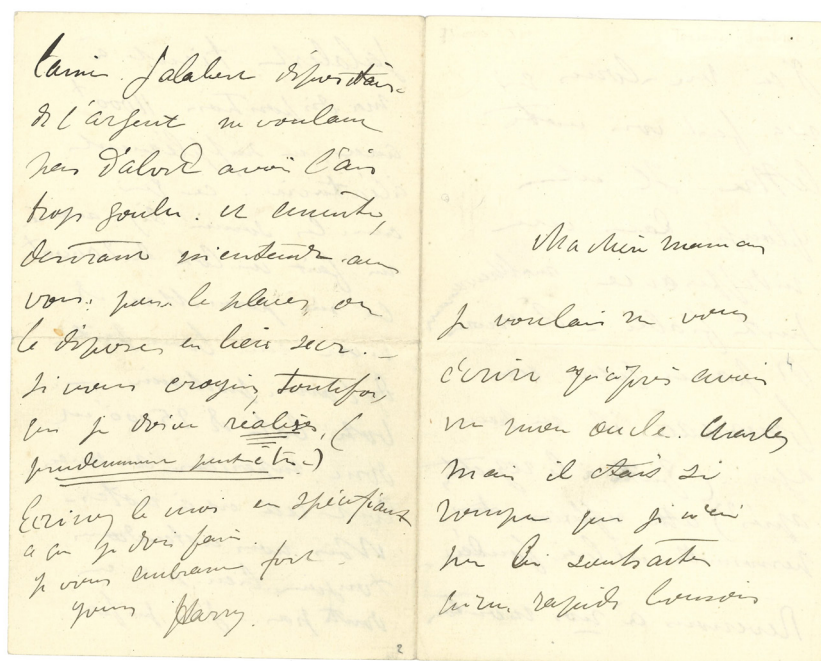 Jalabert dépositaire
de l'argent ne voulant
pas d'abord avoir l'air
trop goulu. et ensuite,
desirant s'entendre avec
vous: pour le placer ou
le disposer en lieu sûr. —
si vous croyez, toutefois,
que je doive réaliser, (
prudemment peut-être.)
Ecrivez le moi en spécifiant
ce que je dois faire.
je vous embrasse fort
yours Harry.
2
Ma chère maman
je voulais ne vous
écrire qu'après avoir
vu mon oncle. Charles
mais il était si
rompu que je n'ai
pu lui
qu'un rapide bonsoir